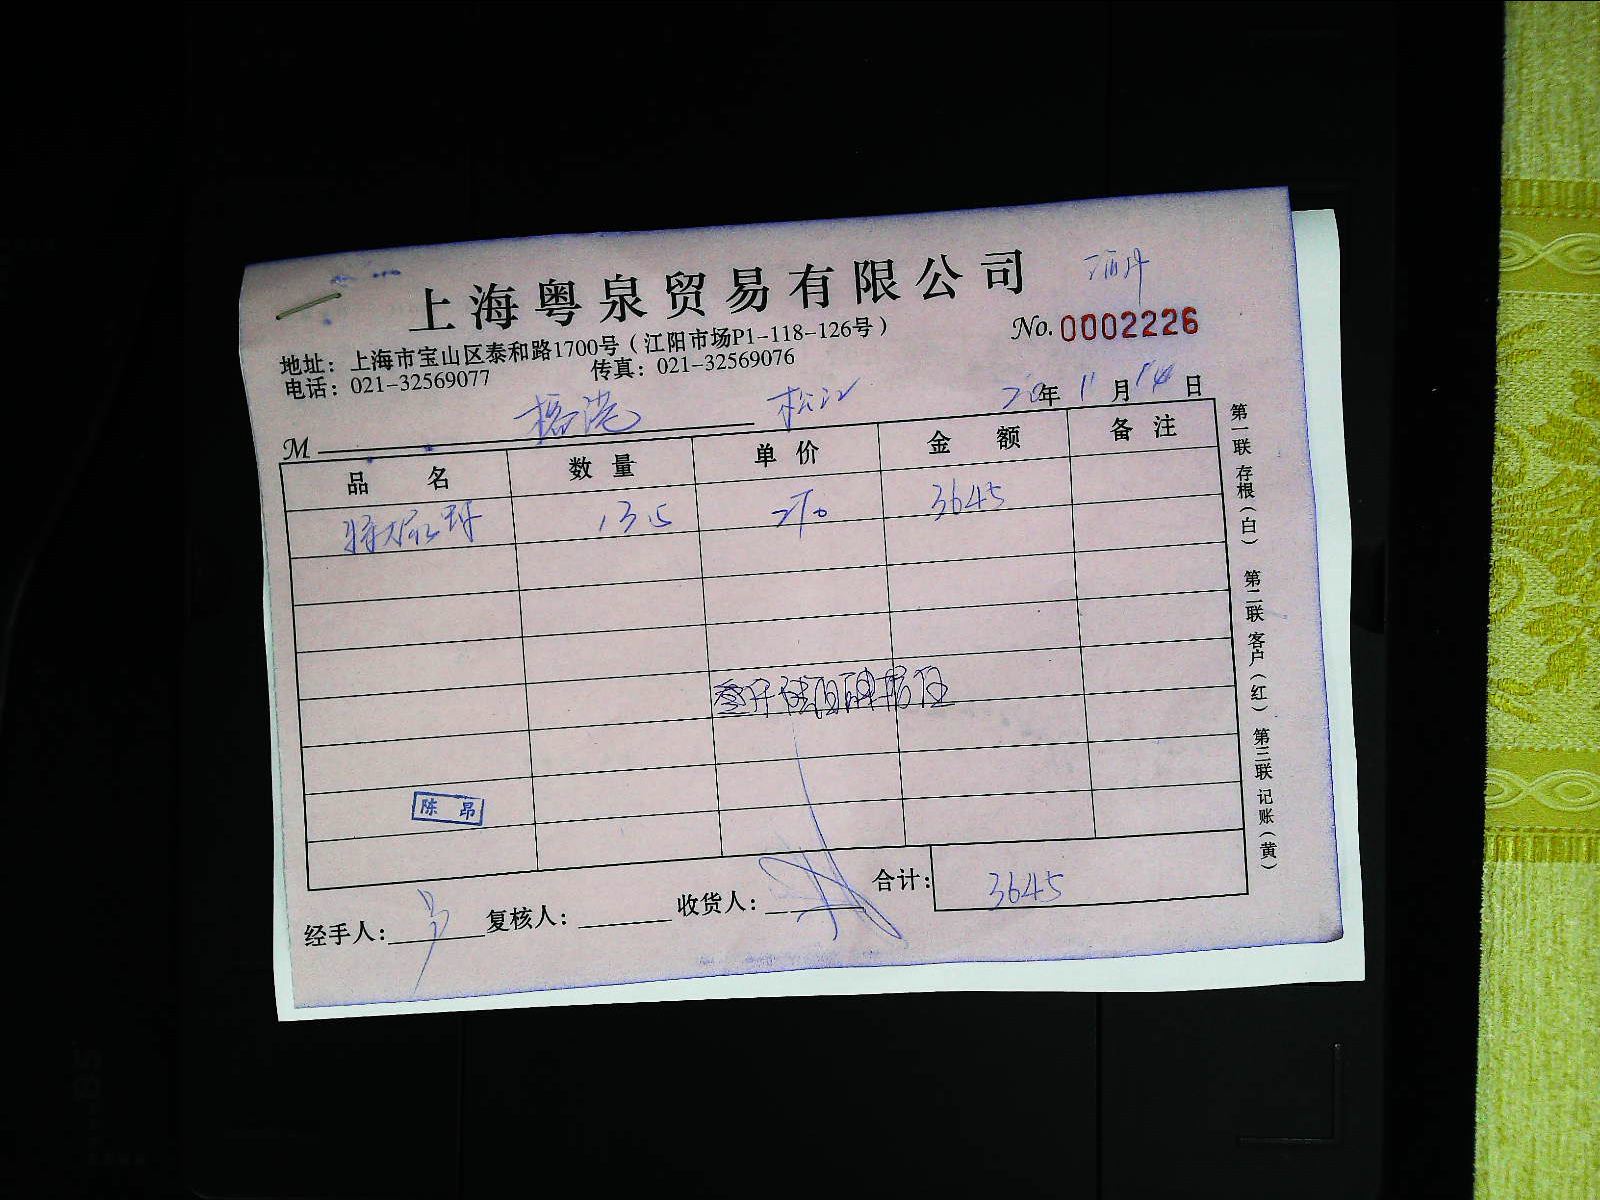 上海粤泉贸易有限公司
No. 0002226
地址：上海市宝山区泰和路1700号（江阳市场P1-118-126号）
电话：021-32569077 传真：021-32569076
松江
年 11 月 14 日
M
品 名 数 量 单 价 金 额 备 注
13.5 270 3645
叁仟陆佰肆拾伍
陈 昂
合计: 3645
经手人: 复核人: 收货人:
第一联 存根（白） 第二联 客户（红） 第三联 记账（黄）